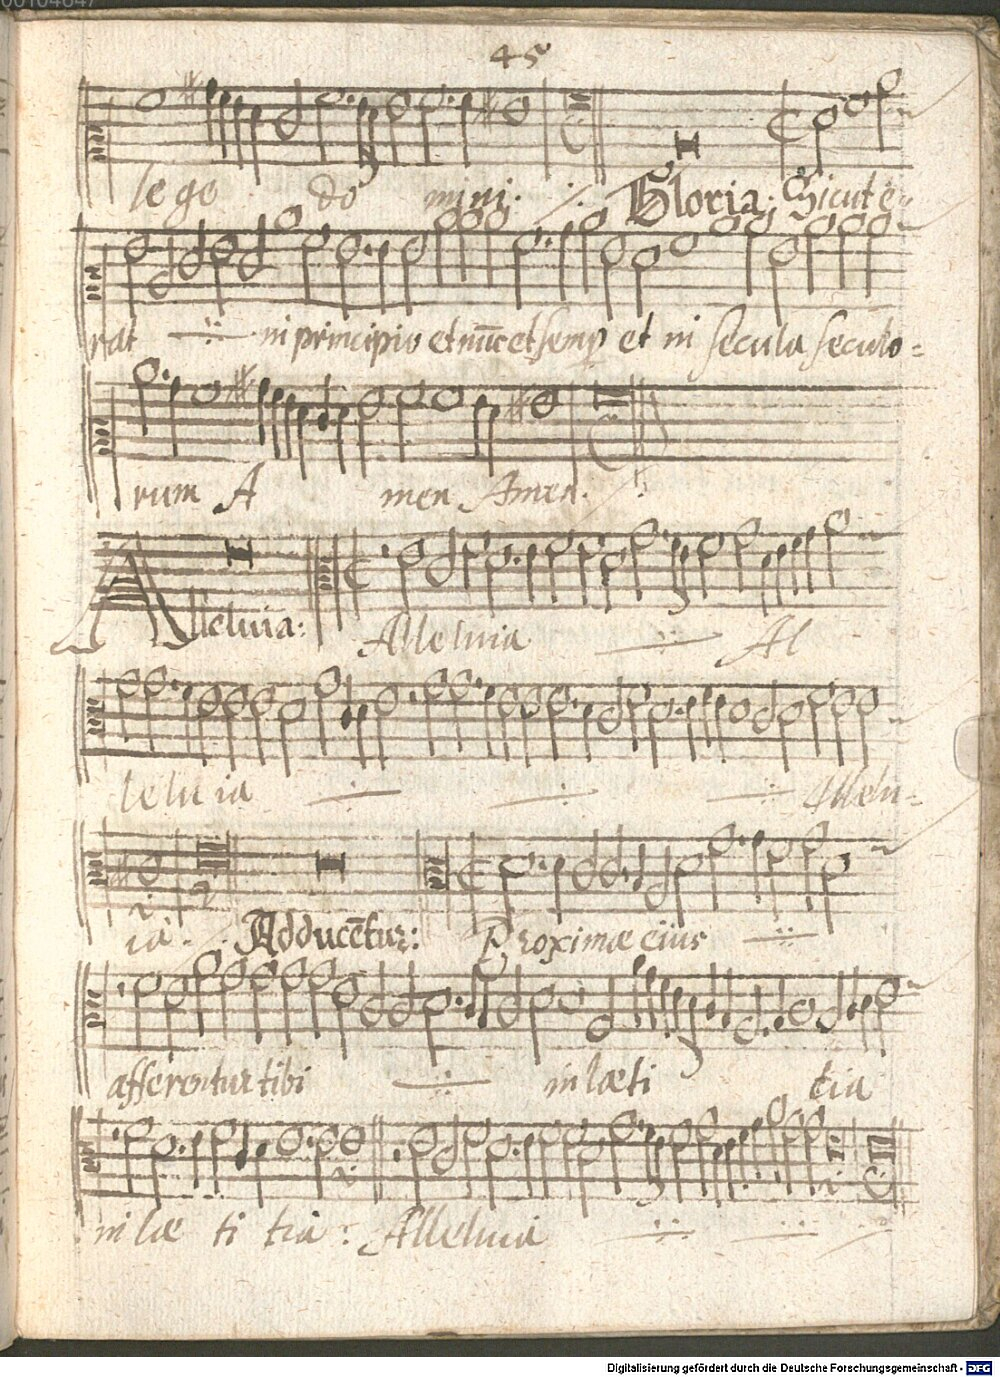 45
lege do mini. Gloria: Sicut e-
rat in principio et nūc et semp et in secula seculo=
rum A men Amen.
Alleluia: Alleluia Al
leluia Allelu=
ia. Adducētur: Proximæ eius
afferentur tibi in læti tia
in læ ti tia: Alleluia
Digitalisierung gefördert durch die Deutsche Forschungsgemeinschaft - DFG